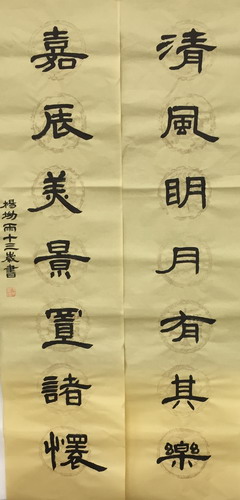 清風明月有其樂
嘉辰美景置諸懷
楊坳雨十三歲書